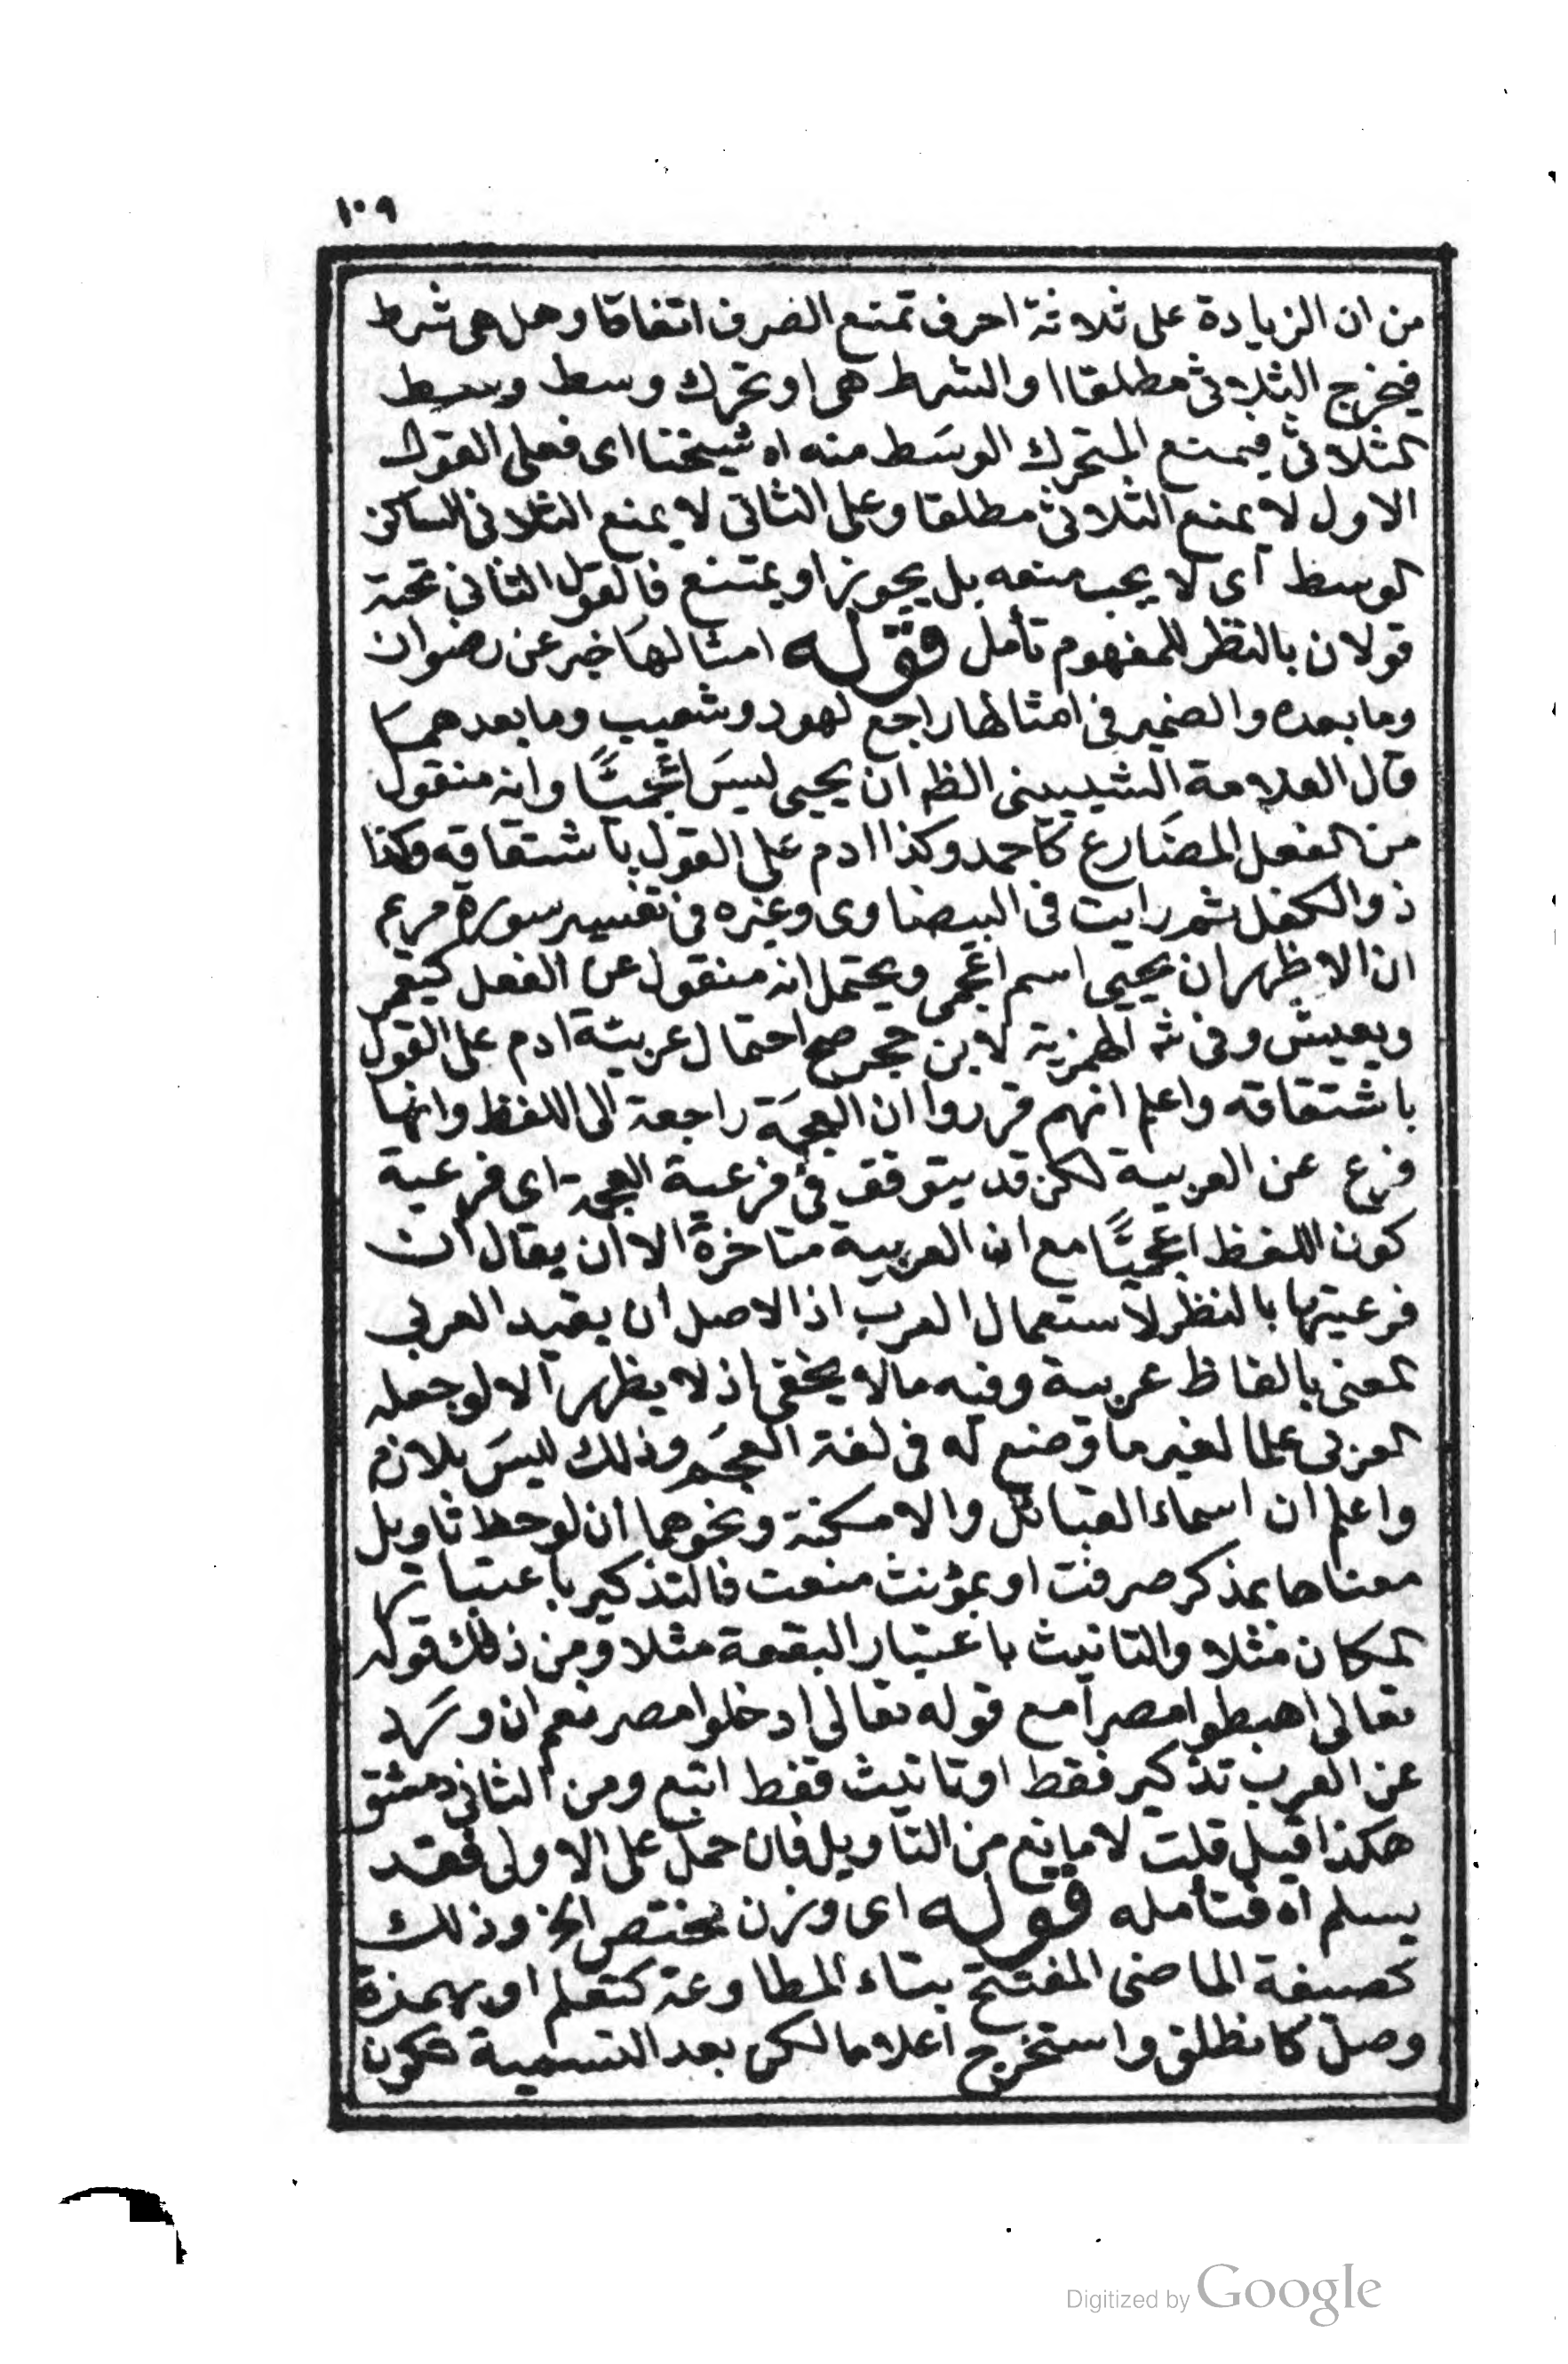 ١٠٩
من ان الزيادة على ثلاثة احرف تمنع الصرف اتفاقا وهل هي شرط
فيخرج الثلاثى مطلقا او الشرط هى او تحرك وسط وسط
الثلاثى فيمنع المتحرك الوسَط منه اه شيخنا اى فعلى القول
الاول لا يمنع الثلاثى مطلقا وعلى الثانى لا يمنع الثلاثى الساكن
الوسط اى لا يجب منعه بل يجوز او يمتنع فالقول الثانى تحته
قولان بالنظر للمفهوم تأمل قوله امثالها خبر عن رضوان
وما بعده والضمير فى امثالها راجع لهود وشعيب وما بعدهما
قال العلامة الشبينى الظ ان يحيى ليسَ اعجميًّا وانه منقول
من الفعل المضَارع كاحمد وكذا ادم على القول باشتقاقه وكذا
ذو الكفل ثم رايت فى البيضاوى وغيره فى تفسير سورة مريم
ان الاظهر ان يحيى اسم اعجمى ويحتمل انه منقول عن الفعل كيعمر
ويعيش وفى ش الهمزية لابن حجر صح احتمال عربية ادم على القول
باشتقاقه واعلم انهم قرروا ان العجمَة راجعة الى اللفظ وانها
فرع عن العربية لكن قد يتوقف فى فرعية العجمة اى فرعية
كون اللفظ اعجميًّا مع ان العربية متاخرة الا ان يقال ان
فرعيتها بالنظر لاستعمال العرب اذ الاصل ان يفيد العربى
المعنى بالفاظ عربية وفيه ما لا يخفى اذ لا يظهر الا لو جعله
العربى علما لغير ما وضع له فى لغة العجَم وذلك ليسَ بلازم
واعلم ان اسماء القبائل والامكنة ونحوهما ان لوحظ تاويل
معناها بمذكر صرفت او بمؤنث منعت فالتذكير باعتبارها
المكان مثلا والتانيث باعتبار البقعة مثلا ومن ذلك قوله
تعالى اهبطوا مصرا مع قوله تعالى ادخلوا مصر نعم ان ورَد
عن العرب تذكير فقط او تانيث فقط اتبع ومن الثانى دمشق
هكذا قيل قلت لا مانع من التاويل فان حمل على الاولى فقد
يسلم اه فتأمله قوله اى وزن يختص الخ وذلك
كصيغة الماضى المفتتح بتاء المطاوعة كتعلم او بهمزة
وصل كانطلق واستخرج اعلاما لكن بعد التسمية تكون
Digitized by Google